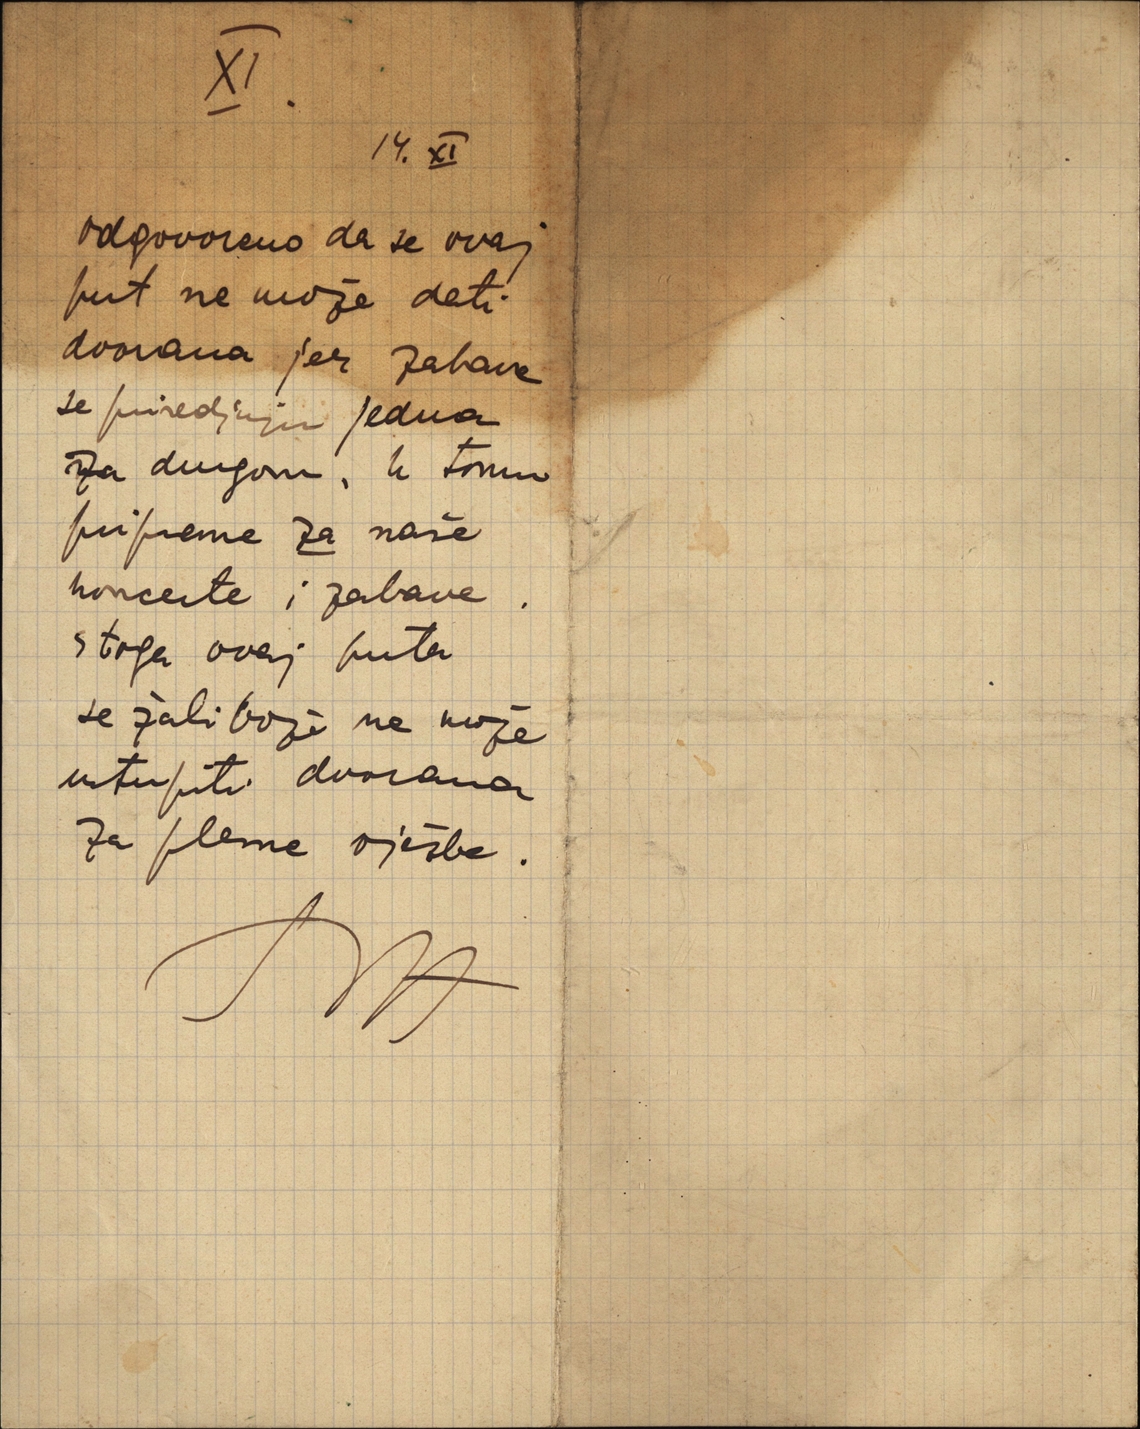 XI.
14. XI
Odgovoreno da se ovaj
put ne može dati
dvorana jer zabave
se priredjuju jedna
za drugom, k tomu
pripreme za naše
koncerte i zabave.
stoga ovaj puta
se žali bože ne može
ustupiti dvorana
za plesne vježbe.